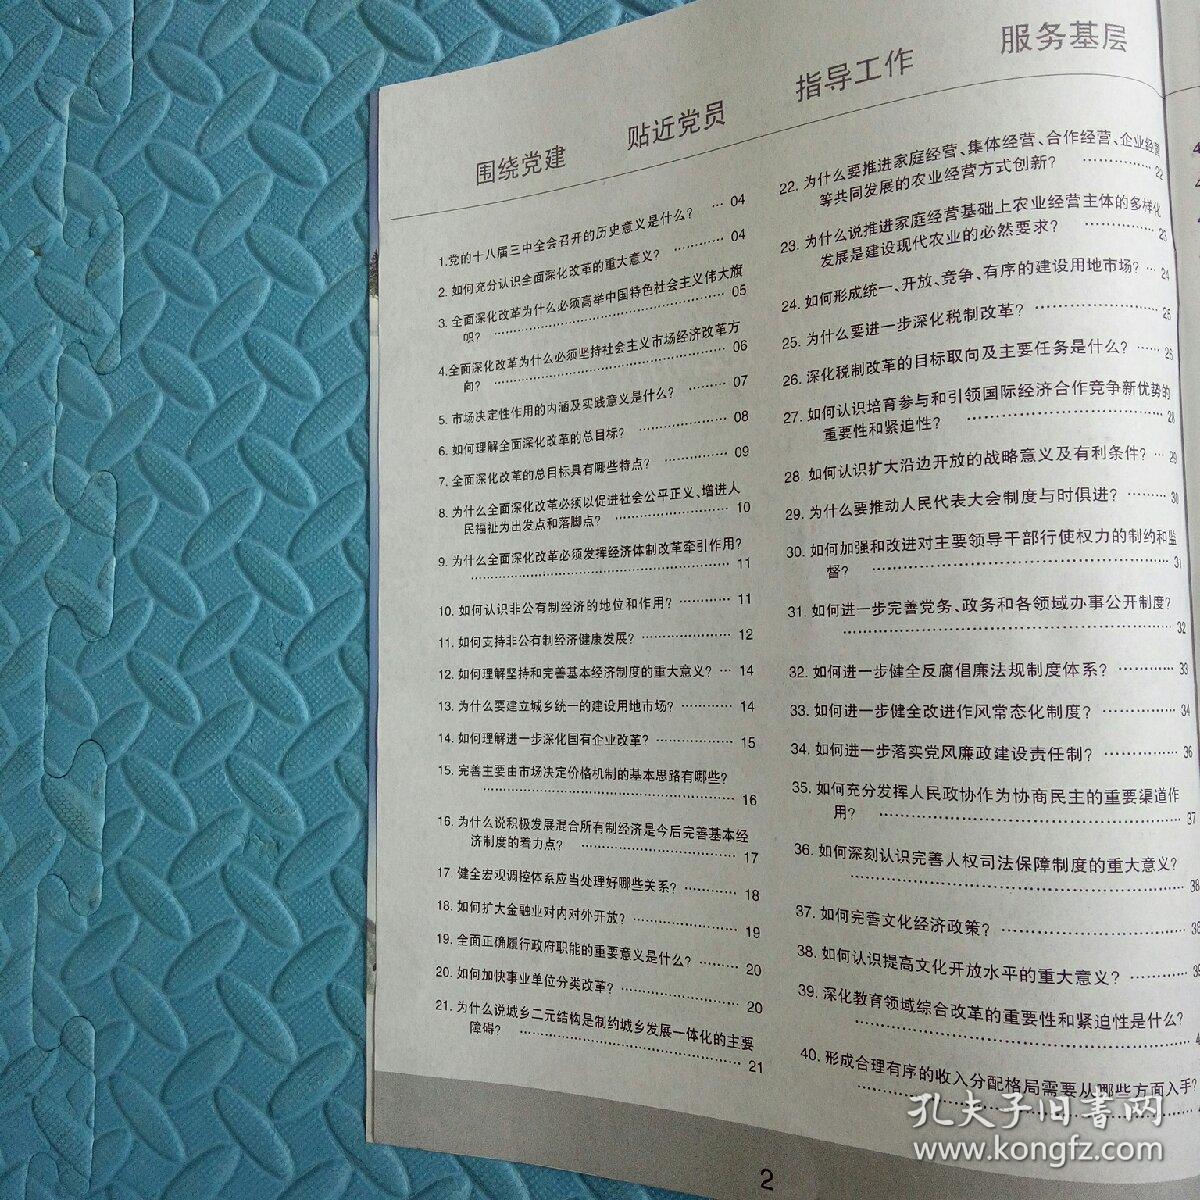 围绕党建 贴近党员 指导工作 服务基层
1.党的十八届三中全会召开的历史意义是什么? … 04
2. 如何充分认识全面深化改革的重大意义? ………… 04
3. 全面深化改革为什么必须高举中国特色社会主义伟大旗
呗? ………… 05
4.全面深化改革为什么必须坚持社会主义市场经济改革方
向? ………… 06
5. 市场决定性作用的内涵及实践意义是什么? ……… 07
6. 如何理解全面深化改革的总目标? ………… 08
7. 全面深化改革的总目标具有哪些特点? ………… 09
8. 为什么全面深化改革必须以促进社会公平正义、增进人
民福祉为出发点和落脚点? ………… 10
9. 为什么全面深化改革必须发挥经济体制改革牵引作用?
………… 11
10. 如何认识非公有制经济的地位和作用? ………… 11
11. 如何支持非公有制经济健康发展? ………… 12
12. 如何理解坚持和完善基本经济制度的重大意义? … 14
13. 为什么要建立城乡统一的建设用地市场? ……… 14
14. 如何理解进一步深化国有企业改革? ………… 15
15. 完善主要由市场决定价格机制的基本思路有哪些?
………… 16
16. 为什么说积极发展混合所有制经济是今后完善基本经
济制度的着力点? ………… 17
17. 健全宏观调控体系应当处理好哪些关系? ……… 18
18. 如何扩大金融业对内对外开放? ………… 19
19. 全面正确履行政府职能的重要意义是什么? ……… 20
20. 如何加快事业单位分类改革? ………… 20
21. 为什么说城乡二元结构是制约城乡发展一体化的主要
障碍? ………… 21
22. 为什么要推进家庭经营、集体经营、合作经营、企业经营
等共同发展的农业经营方式创新? ………… 22
23. 为什么说推进家庭经营基础上农业经营主体的多样化
发展是建设现代农业的必然要求? ………… 23
24. 如何形成统一、开放、竞争、有序的建设用地市场? … 24
25. 为什么要进一步深化税制改革? ………… 25
26. 深化税制改革的目标取向及主要任务是什么? …… 26
27. 如何认识培育参与和引领国际经济合作竞争新优势的
重要性和紧迫性? ………… 28
28. 如何认识扩大沿边开放的战略意义及有利条件? … 29
29. 为什么要推动人民代表大会制度与时俱进? ……… 30
30. 如何加强和改进对主要领导干部行使权力的制约和监
督? ………… 31
31. 如何进一步完善党务、政务和各领域办事公开制度?
………… 32
32. 如何进一步健全反腐倡廉法规制度体系? ………… 33
33. 如何进一步健全改进作风常态化制度? ………… 34
34. 如何进一步落实党风廉政建设责任制? ………… 36
35. 如何充分发挥人民政协作为协商民主的重要渠道作
用? ………… 37
36. 如何深刻认识完善人权司法保障制度的重大意义?
………… 38
37. 如何完善文化经济政策? …………
38. 如何认识提高文化开放水平的重大意义? …………
39. 深化教育领域综合改革的重要性和紧迫性是什么?
…………
40. 形成合理有序的收入分配格局需要从哪些方面入手?
2
孔夫子旧书网
www.kongfz.com